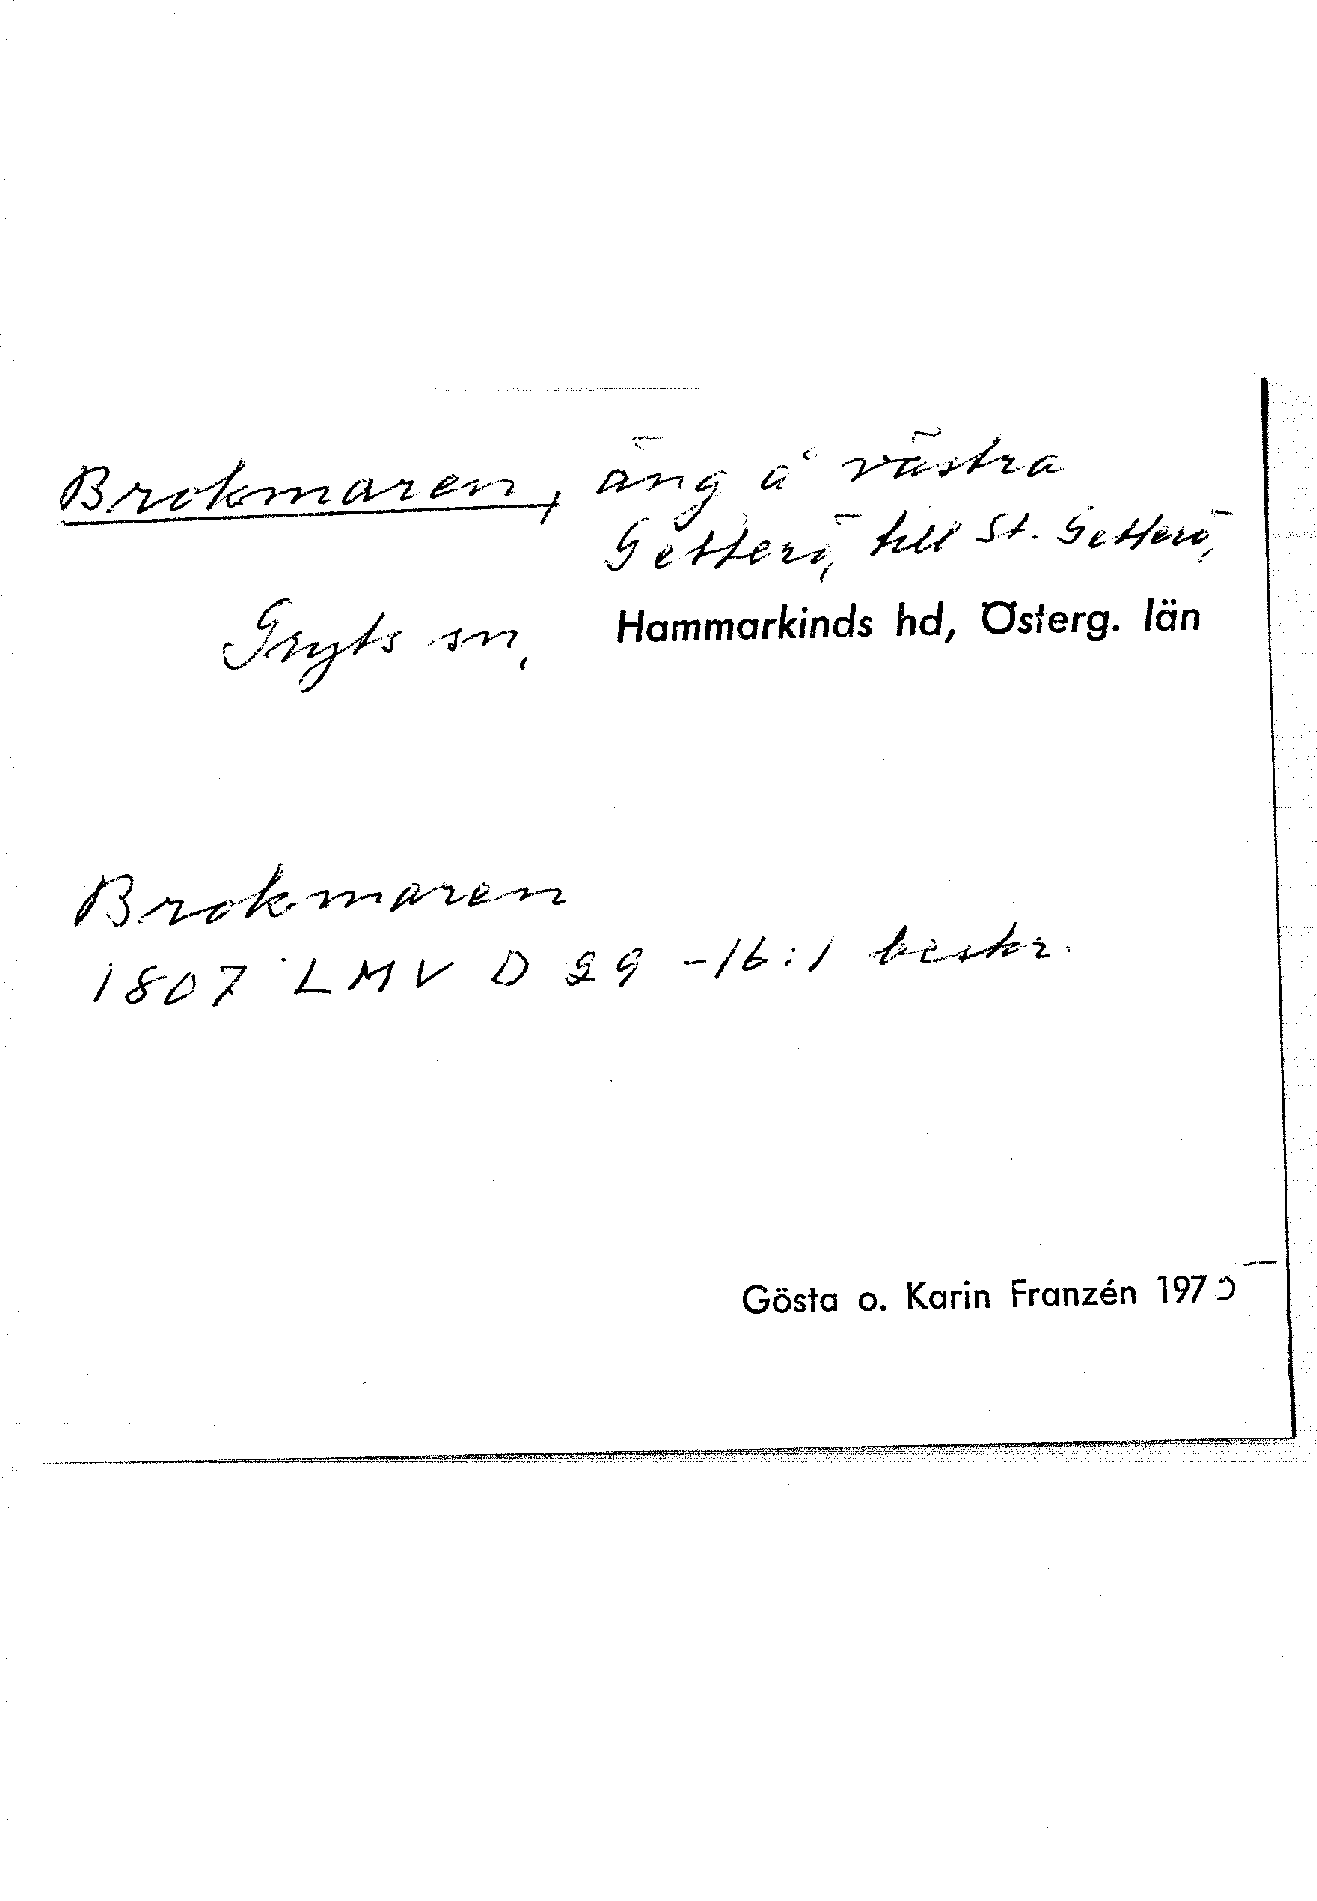 Brokmaren, äng å västra
Getterö, till St. Getterö,
Gryts sn, Hammarkinds hd, Österg. län
Brokmaren
1807 LMV D 29 -16:1 beskr.
Gösta o. Karin Franzén 197